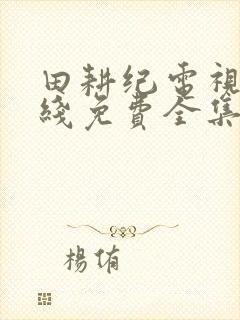 田耕纪电視
綫免費全集
楊侑